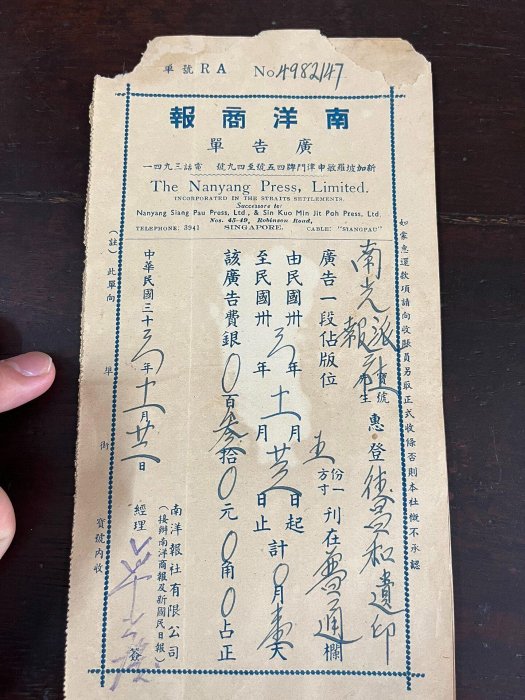 單號 RA No. 4982147
南洋商報
廣告單
新加坡羅敏申律門牌四五號至四九號 電話三九四一
The Nanyang Press, Limited.
INCORPORATED IN THE STRAITS SETTLEMENTS.
Successors to:
Nanyang Siang Pau Press, Ltd., & Sin Kuo Min Jit Poh Press, Ltd.
Nos. 45-49, Robinson Road,
TELEPHONE: 3941 SINGAPORE. CABLE: "SIANGPAU"
如蒙惠還款項請向收賬員另取正式收條否則本社概不承認
南光派報社 寶號 先生 惠登 昌和遺印
廣告一段佔版位 五 方寸 份一 刊在普通欄
由民國卅六年十一月 日起計0月 天
至民國卅 年 月 日止
該廣告費銀0百叁拾0元0角0占正
南洋報社有限公司
（接辦南洋商報及新國民日報）
經理 簽
中華民國三十六年十一月 日
（註）此單向 埠 街 寶號內收